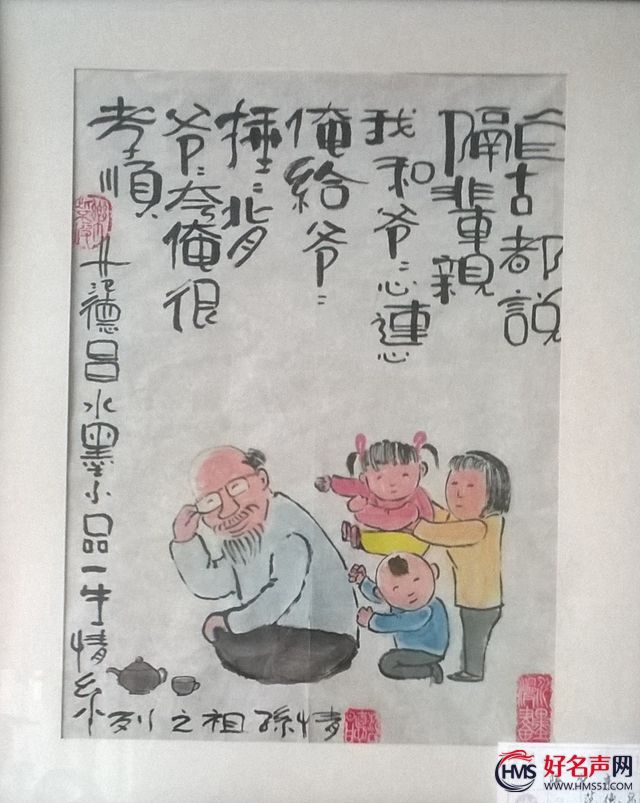 自古都説
隔輩親
我和爷〻心連心
俺給爷〻
捶〻背
爷〻夸俺很
孝順
德昌水墨小品一
情系列之祖孫情
HMS
好名声网
WWW.HMS51.COM